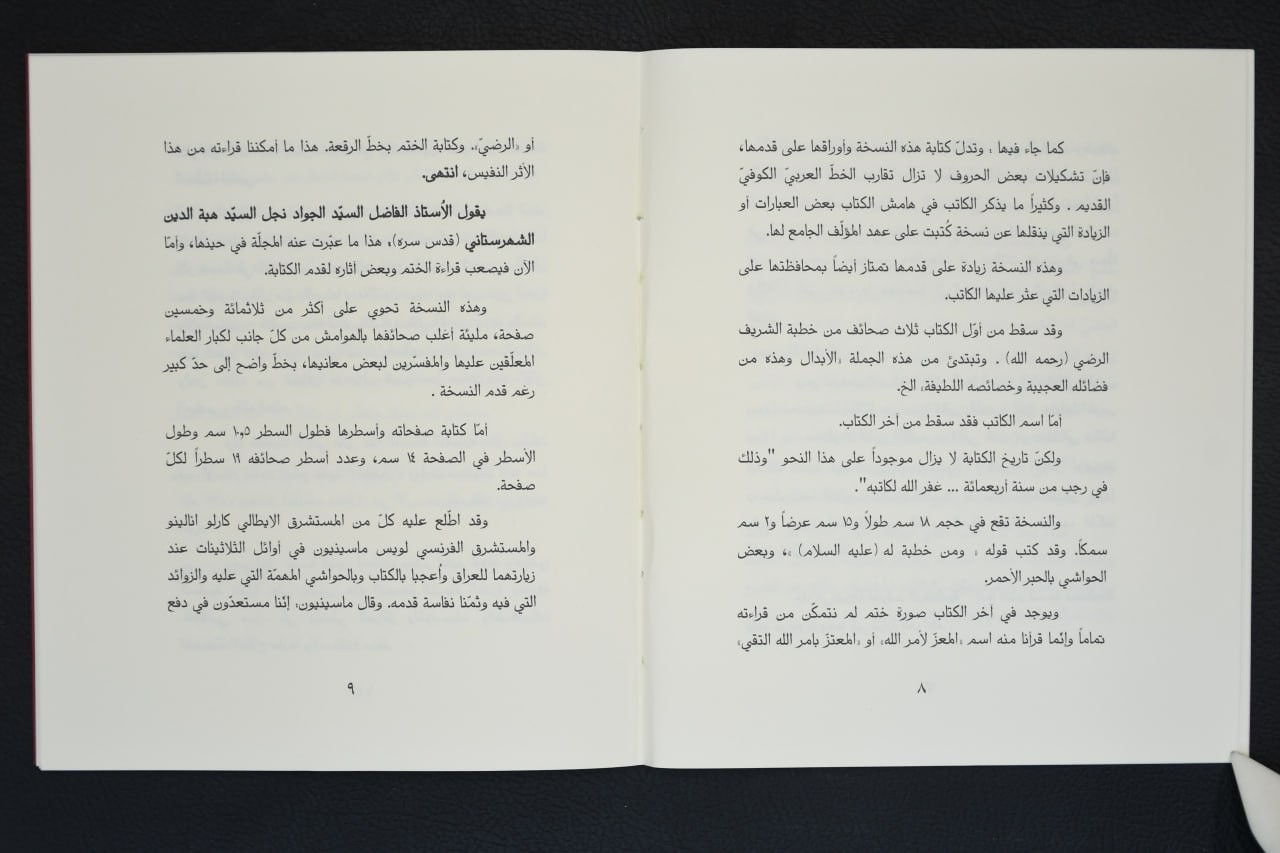 كما جاء فيها : وتدلّ كتابة هذه النسخة وأوراقها على قدمها،
فإنّ تشكيلات بعض الحروف لا تزال تقارب الخطّ العربيّ الكوفيّ
القديم . وكثيراً ما يذكر الكاتب في هامش الكتاب بعض العبارات أو
الزيادة التي ينقلها عن نسخة كُتبت على عهد المؤلّف الجامع لها.
وهذه النسخة زيادة على قدمها تمتاز أيضاً بمحافظتها على
الزيادات التي عثر عليها الكاتب.
وقد سقط من أوّل الكتاب ثلاث صحائف من خطبة الشريف
الرضي (رحمه الله) . وتبتدئ من هذه الجملة «الأبدال وهذه من
فضائله العجيبة وخصائصه اللطيفة» الخ.
أمّا اسم الكاتب فقد سقط من آخر الكتاب.
ولكنّ تاريخ الكتابة لا يزال موجوداً على هذا النحو "وذلك
في رجب من سنة أربعمائة ... غفر الله لكاتبه".
والنسخة تقع في حجم ١٨ سم طولاً و١٥ سم عرضاً و٢ سم
سمكاً. وقد كتب قوله « ومن خطبة له (عليه السلام) »، وبعض
الحواشي بالحبر الأحمر.
ويوجد في آخر الكتاب صورة ختم لم نتمكّن من قراءته
تماماً وإنّما قرأنا منه اسم «المعزّ لأمر الله» أو «المعتزّ بامر الله التقي»
٨
أو «الرضيّ». وكتابة الختم بخطّ الرقعة. هذا ما أمكننا قراءته من هذا
الأثر النفيس، انتهى.
يقول الأُستاذ الفاضل السيّد الجواد نجل السيّد هبة الدين
الشهرستاني (قدس سره): هذا ما عبّرت عنه المجلّة في حينها، وأمّا
الآن فيصعب قراءة الختم وبعض آثاره لقدم الكتابة.
وهذه النسخة تحوي على أكثر من ثلاثمائة وخمسين
صفحة، مليئة أغلب صحائفها بالهوامش من كلّ جانب لكبار العلماء
المعلّقين عليها والمفسّرين لبعض معانيها، بخطّ واضح إلى حدّ كبير
رغم قدم النسخة .
أمّا كتابة صفحاته وأسطرها فطول السطر ١٠,٥ سم وطول
الأسطر في الصفحة ١٤ سم، وعدد أسطر صحائفه ١٩ سطراً لكلّ
صفحة.
وقد اطّلع عليه كلّ من المستشرق الايطالي كارلو انالينو
والمستشرق الفرنسي لويس ماسينيون في أوائل الثلاثينات عند
زيارتهما للعراق وأُعجبا بالكتاب وبالحواشي المهمّة التي عليه والزوائد
التي فيه وثمّنا نفاسة قدمه. وقال ماسينيون: إنّنا مستعدّون في دفع
٩